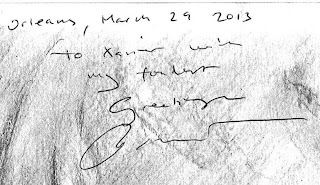 Orleans, March 29 2013
To Xavier with
my fondest
Greetings